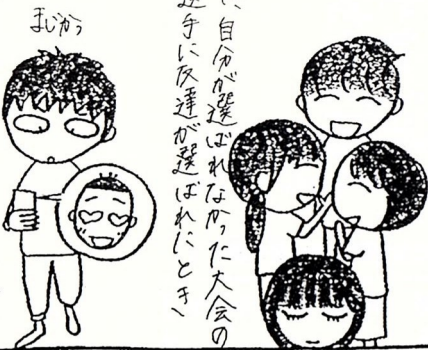 まじかっ
、自分が選ばれなかった大会の
選手に友達が選ばれたとき、